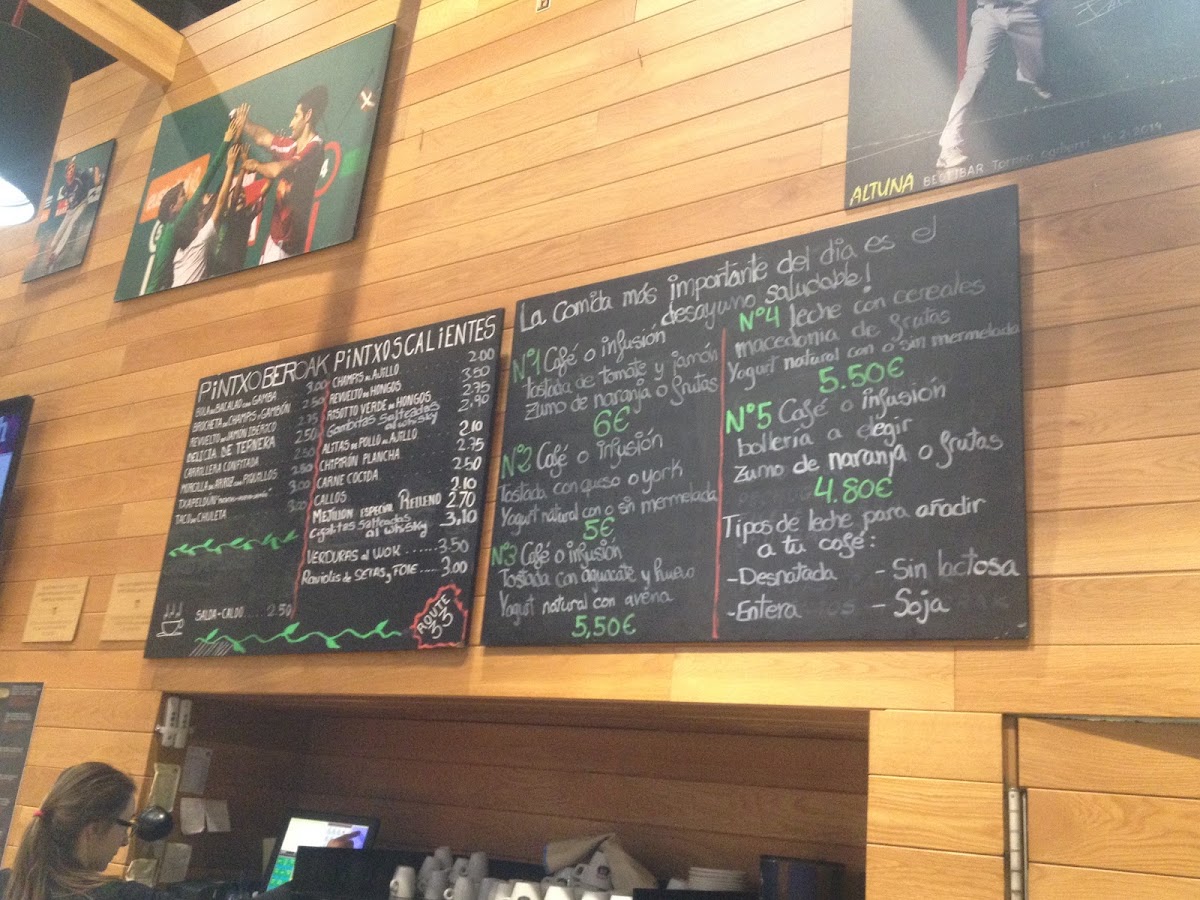 ALTUNA BEOTIBAR Torneo 15.2.2014
PINTXO BEROAK PINTXOS CALIENTES
BOLA DE BACALAO CON GAMBA 3.00
BROCHETA DE CHAMPIS Y GAMBÓN 2.50
REVUELTO DE JAMON IBÉRICO 2.75
DELICIA DE TERNERA 2.50
CARRILLERA CONFITADA
MORCILLA DE ARROZ CON PIQUILLOS
TXAPELDUN
TACO DE CHULETA 3.00
CHAMPIS AL AJILLO 2.00
REVUELTO DE HONGOS 3.50
RISOTTO VERDE DE HONGOS 2.75
Gambitas Salteadas al whisky 2.90
ALITAS DE POLLO AL AJILLO 2.10
CHIPIRÓN PLANCHA 2.75
CARNE COCIDA 2.50
CALLOS 2.10
MEJILLON ESPECIAL RELLENO 2.70
Cigalitas Salteadas al whisky 3,10
VERDURAS al WOK ...... 3.50
Raviolis de SETAS y FOIE .... 3.00
SALDA-CALDO .... 2.50
ROUTE 33
La comida más importante del dia es el
desayuno saludable!
Nº1 Café o infusión
Tostada de tomate y jamón
Zumo de naranja o frutas
6€
Nº2 Café o infusión
Tostada con queso o york
Yogurt natural con o sin mermelada
5€
Nº3 Café o infusión
Tostada con aguacate y huevo
Yogurt natural con avena
5,50€
Nº4 leche con cereales
macedonia de frutas
Yogurt natural con o sin mermelada
5.50€
Nº5 Café o infusion
bolleria a elegir
Zumo de naranja o frutas
4.80€
Tipos de leche para añadir
a tu café:
-Desnatada - Sin lactosa
-Entera - Soja